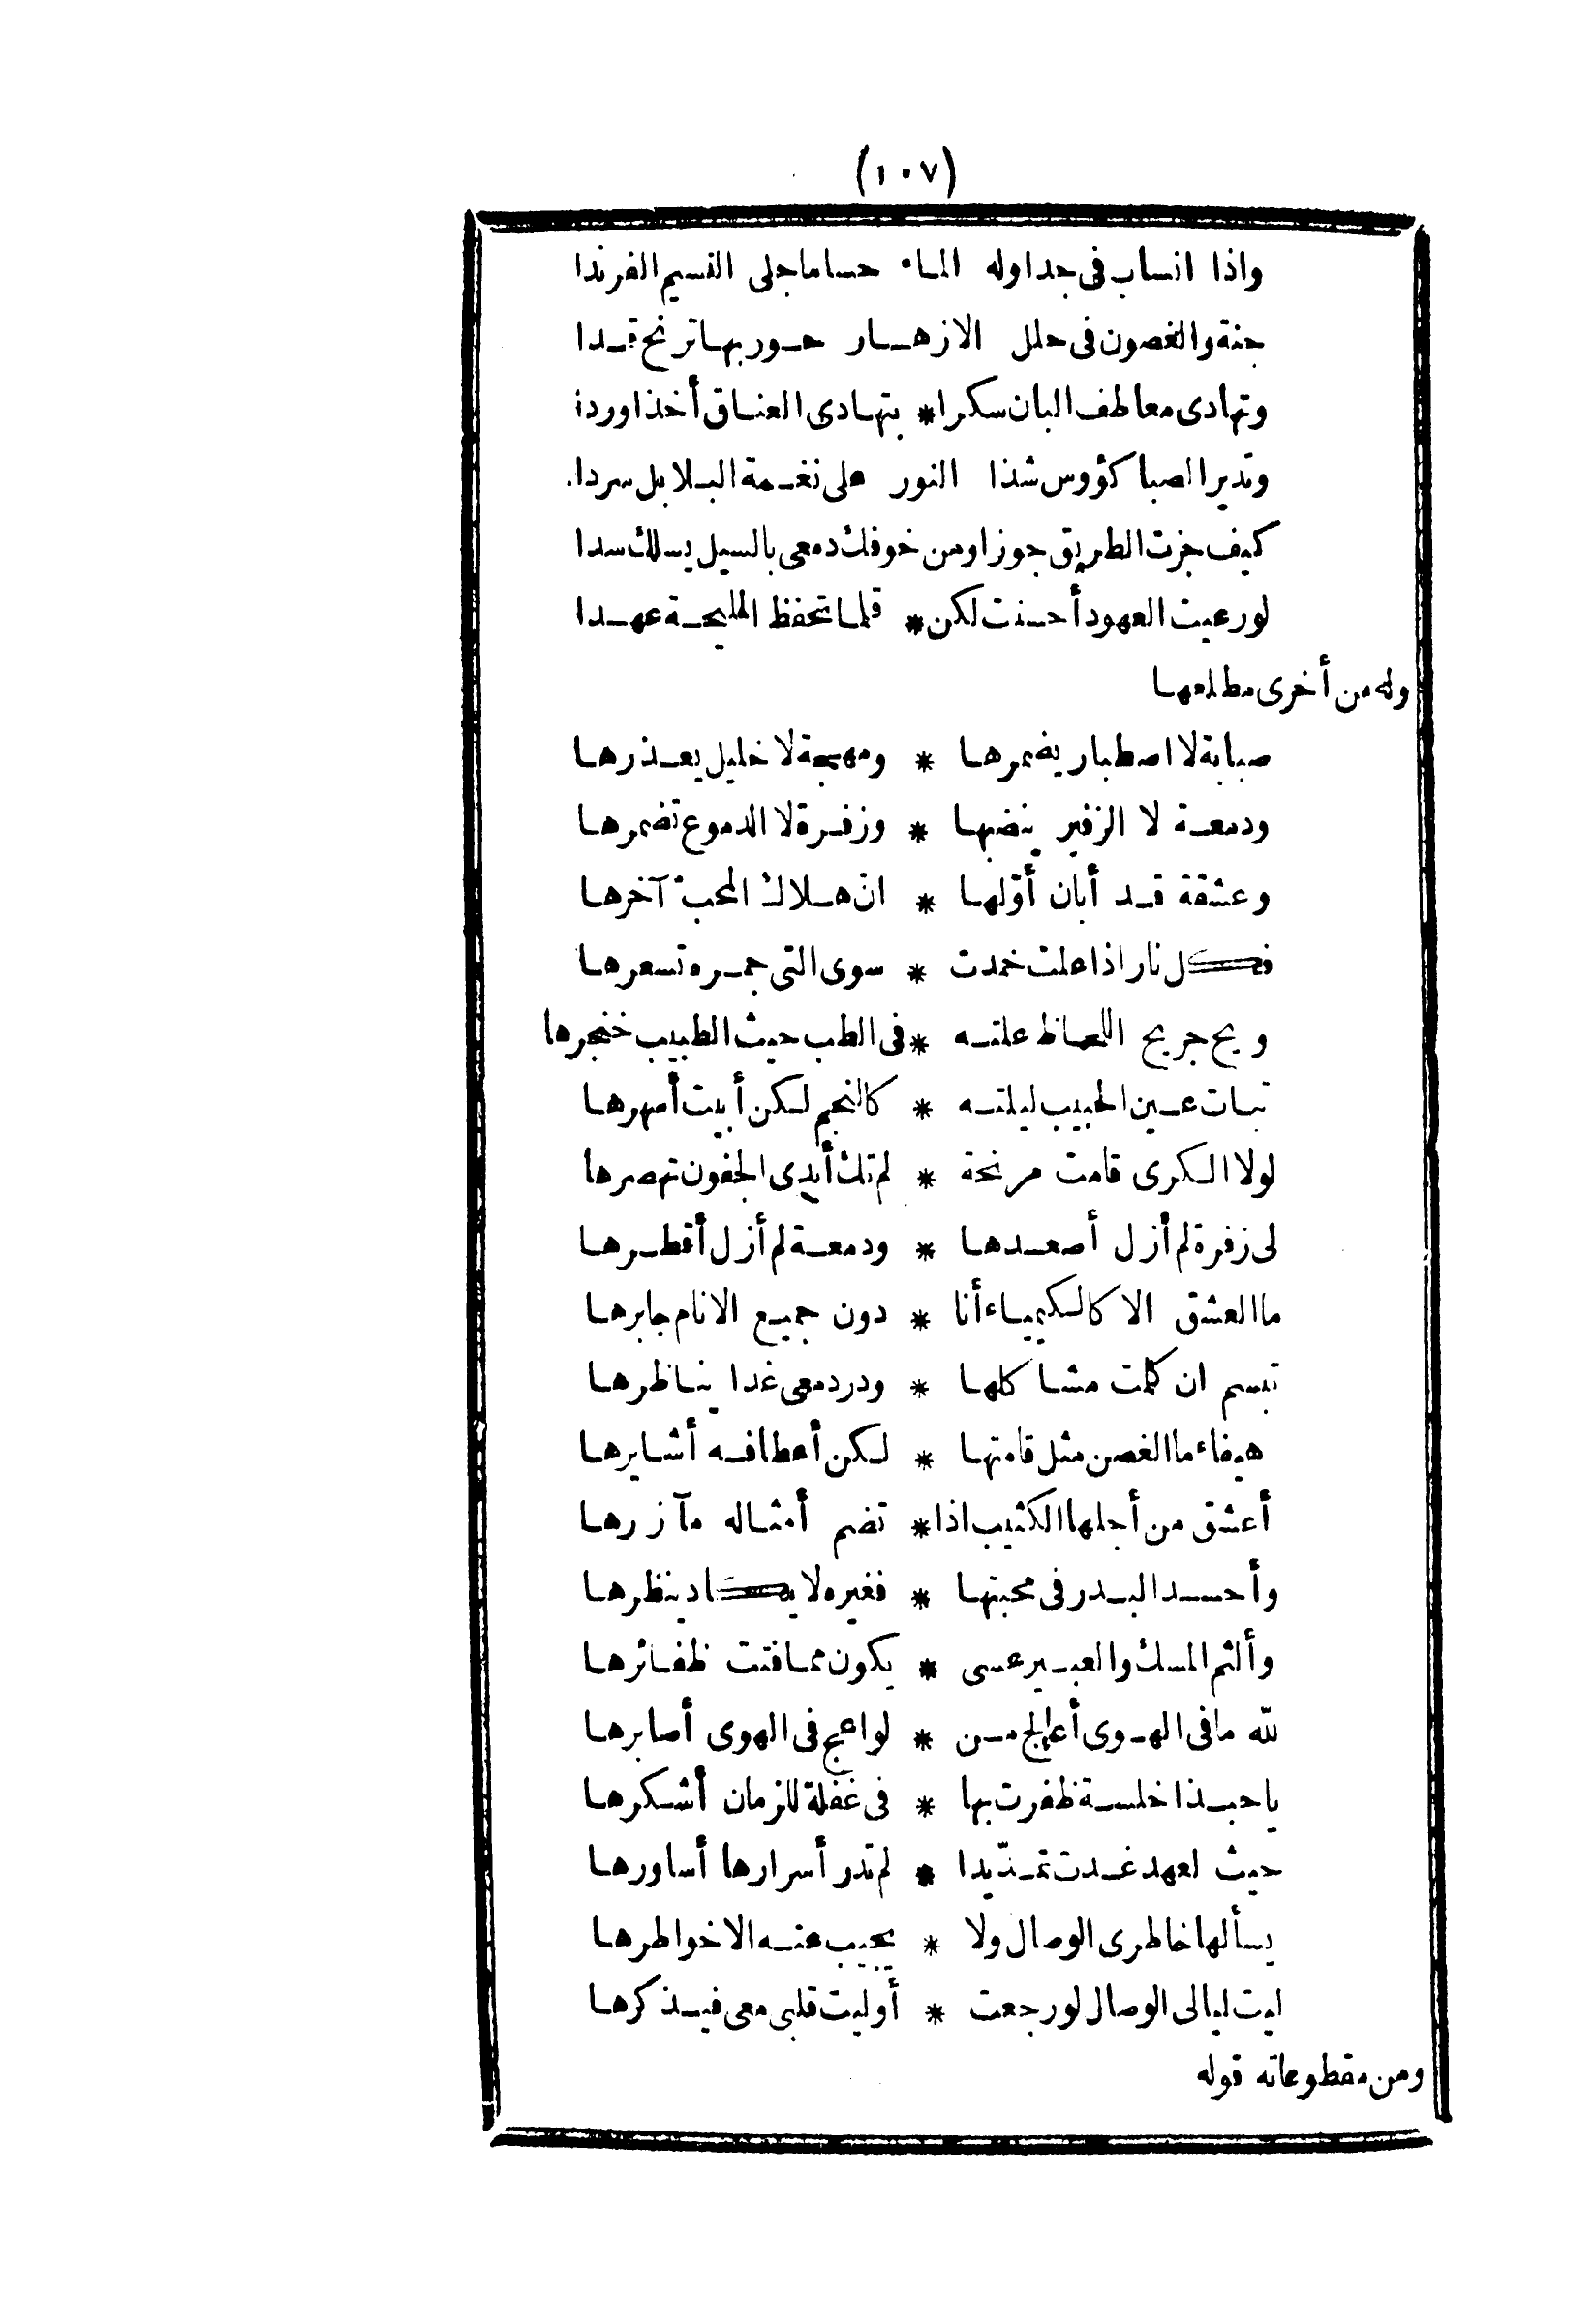 (١٠٧)
واذا انساب فى جداوله الماء حساما جلى النسيم الفرندا
جنة والغصون فى حلل الازهار حور بها ترنح قدا
وتهادى معاطف البان سكرا * بتهادى العناق أخذا وردا
وتدير الصبا كؤوس شذا النور على نغمة البلابل سردا
كيف جزت الطريق جوزا ومن خوفك دمعى بالسيل يسلك سدا
لو رعيت العهود أحسنت لكن * قلما تحفظ المليحة عهدا
وله من أخرى مطلعها
صبابة لا اصطبار يضمرها * ومهجة لا خليل يعذرها
ودمعة لا الزفير ينضبها * وزفرة لا الدموع تضمرها
وعشقة قد أبان أوّلها * انّ هلاك المحبّ آخرها
فكل نار اذا علت خمدت * سوى التى جمره تسعرها
ويح جريح اللحاظ علته * فى الطب حيث الطبيب خنجرها
تبات عين الحبيب ليلته * كالنجم لكن أبيت أسهرها
لولا الكرى قامت مرنحة * لم تك أيدى الجفون تهصرها
لى زفرة لم أزل أصعدها * ودمعة لم أزل أقطرها
ما العشق الا كالكيمياء أنا * دون جميع الانام جابرها
تبسم ان كلمت مشاكلها * ودر دمعى غدا يناظرها
هيفاء ما الغصن مثل قامتها * لكن أعطافه أشايرها
أعشق من أجلها الكثيب اذا * تضم أمثاله مآزرها
وأحسد البدر فى محبتها * فغيره لا يكاد ينظرها
وألثم المسك والعبير عسى * يكون مما فتت ظفائرها
لله ما فى الهوى أعالج من * لواعج فى الهوى أصابرها
يا حبذا خلسة ظفرت بها * فى غفلة للزمان أشكرها
حيث لعهد غدت تمدّ يدا * لم تدر أسرارها أساورها
يسألها خاطرى الوصال ولا * يجيب عنه الا خواطرها
ليت ليالى الوصال لو رجعت * أوليت قلبى معى فيذكرها
ومن مقطوعاته قوله